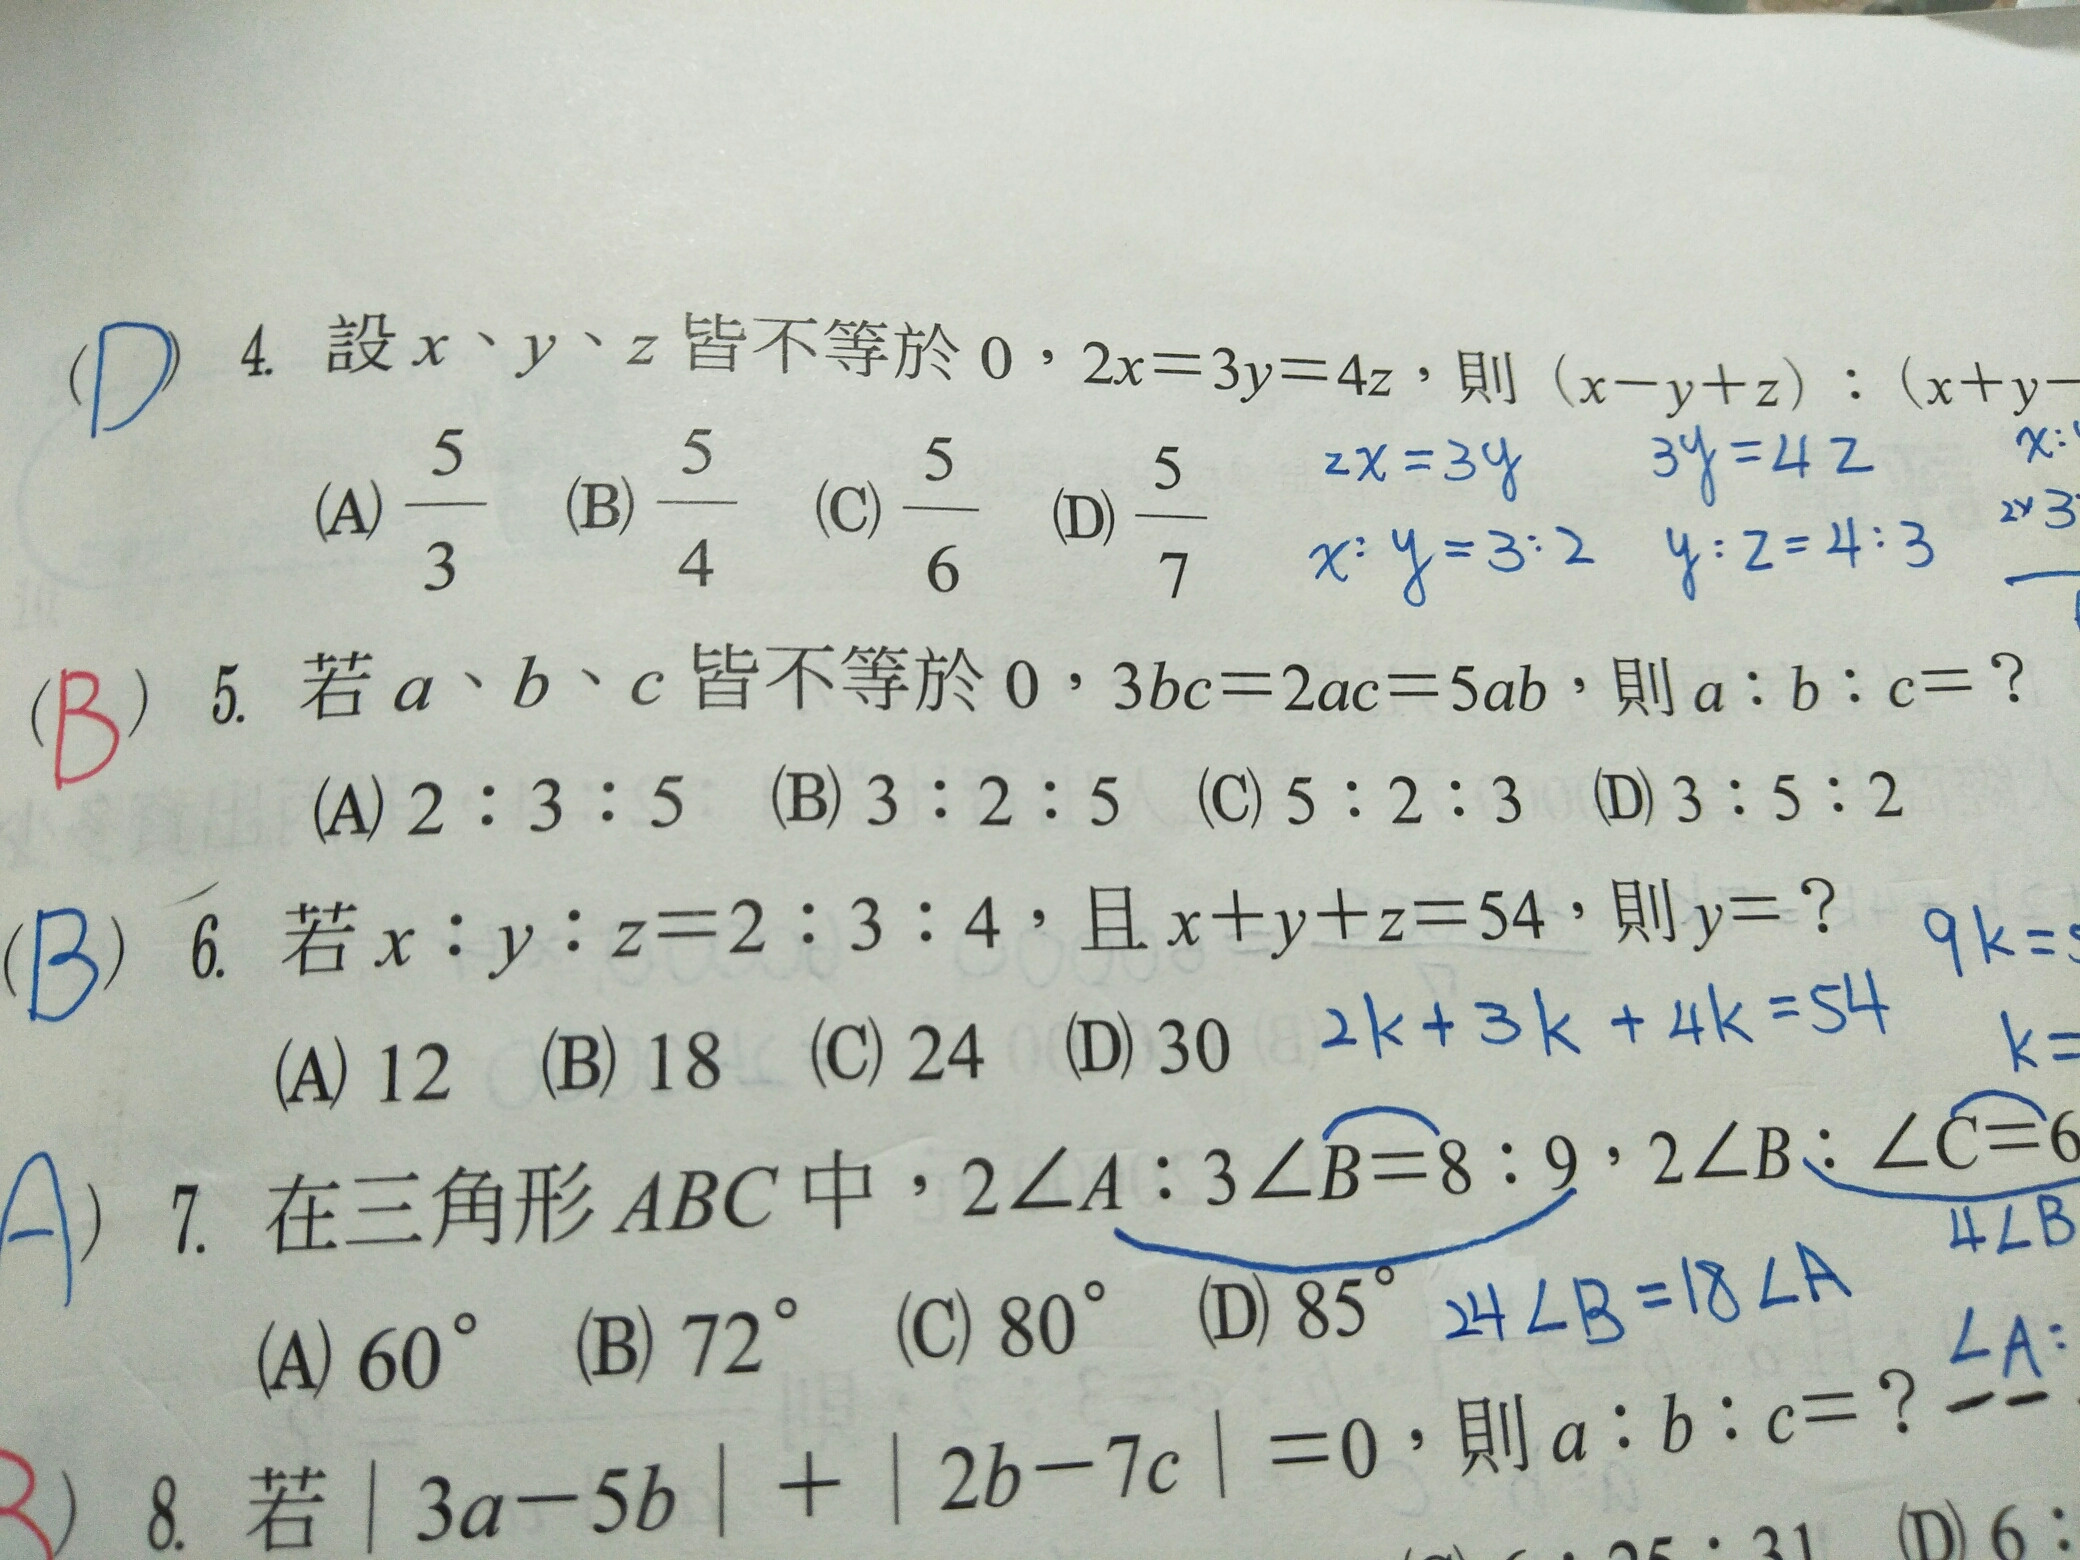 (D) 4. 設 x、y、z 皆不等於 0，2x=3y=4z，則 (x-y+z)：(x+y-
(A) 5/3 (B) 5/4 (C) 5/6 (D) 5/7
2x=3y 3y=4z x:
x:y=3:2 y:z=4:3
(B) 5. 若 a、b、c 皆不等於 0，3bc=2ac=5ab，則 a：b：c=？
(A) 2：3：5 (B) 3：2：5 (C) 5：2：3 (D) 3：5：2
(B) 6. 若 x：y：z=2：3：4，且 x+y+z=54，則 y=？
9k=
(A) 12 (B) 18 (C) 24 (D) 30 2k+3k+4k=54
k=
A) 7. 在三角形 ABC 中，2∠A：3∠B=8：9，2∠B：∠C=6
4∠B
(A) 60° (B) 72° (C) 80° (D) 85° 24∠B=18∠A
∠A:
) 8. 若｜3a-5b｜+｜2b-7c｜=0，則 a：b：c=？
25：31 (D) 6：